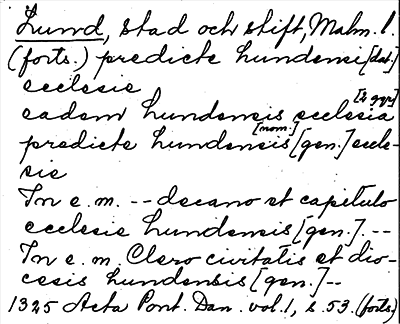 Lund, stad och stift, Malm. l.
(forts.) predicte lundensi [dat.]
ecclesie
eadem lundensis ecclesia [2 ggr]
predicte lundensis [nom.] [gen.] eccle-
sie
In e. m. -- decano et capitulo
ecclesie lundensis [gen.]. --
In e. m. Clero civitatis et dio-
cesis lundensis [gen.] --
1325 Acta Pont. Dan. vol. 1, s. 53. (forts.)